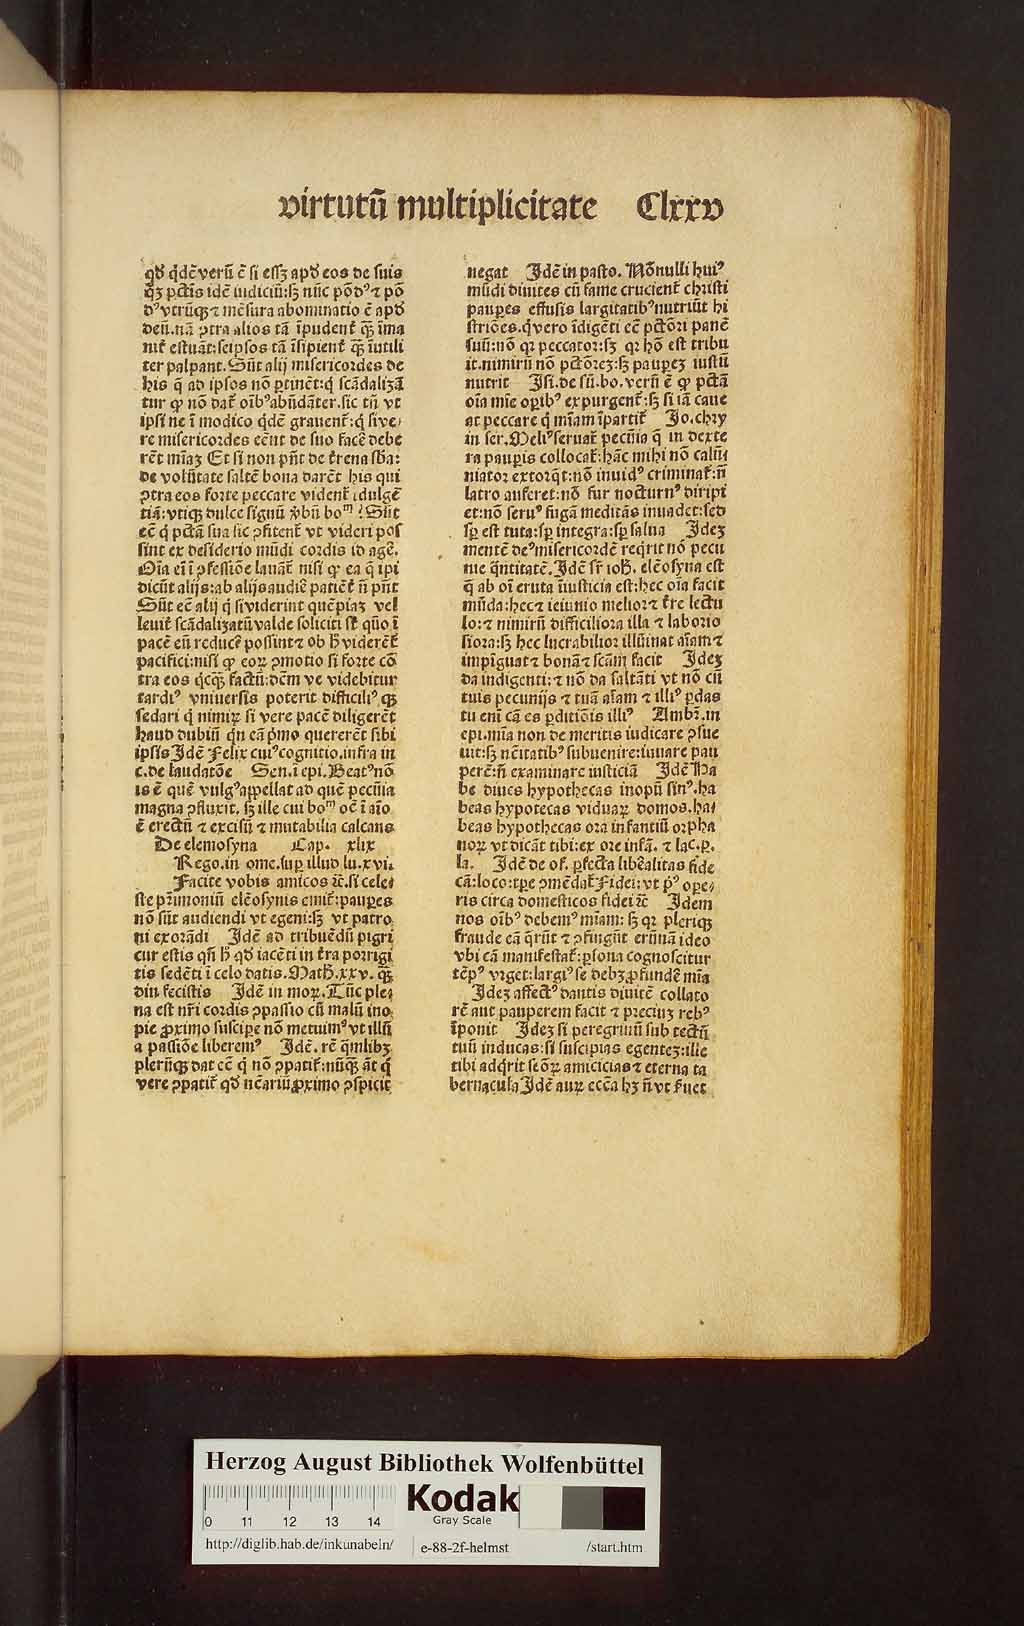 virtutū multiplicitate Clxxv
qđ q̇dē verū ē si essꝫ apđ eos de suis
qꝫ pctīs idē iudiciū:sꝫ nūc pōdꝰ ⁊ pō
dꝰ vtrūqꝫ ⁊ mēsura abominatio ē apđ
deū.nā ꝯtra alios tā īpudent᷑ qꝫ̄ īma
nit᷑ estuāt:seipsos tā īsipient᷑ qꝫ̄ īutili
ter palpant. Sūt alij misericordes de
his q̄ ad ipsos nō ꝑtinēt:q̇ scādalizā
tur ꝙ nō dat᷑ oībꝰ abūdāter.sic tn̄ vt
ipsi ne ī modico q̇dē grauent᷑:q̇ si ve-
re misericordes eēnt de suo facē debe
rēt mīaꝫ Et si non pn̄t de t᷑rena sb̄a:
de volūtate saltē bona darēt his qui
ꝯtra eos forte peccare vident᷑ īdulgē
tiā:vtiqꝫ dulce signū v̄bū boᵐ! Sūt
eē q̇ pctā sua sic ꝯfitent᷑ vt videri pos
sint ex desiderio mūdi cordis id agē.
Oīa eī ī ꝯfessiōe lauāt᷑ nisi ꝙ ea q̄ ipi
dicūt alijs:ab alijs audiē patiēt᷑ n̄ pn̄t
Sūt eē alij q̇ si viderint quēpiaꝫ vel
leuit᷑ scādalizatū valde soliciti st̄ quō ī
pacē eū reducē possint ⁊ ob ħ viderēt᷑
pacifici:nisi ꝙ eoꝝ ꝓmotio si forte cō
tra eos q̇cqꝫ̄ factū:dcm̄ ve videbitur
tardiꝰ vniuersis poterit difficiliꝰ qꝫ̄
sedari q̇ nimiꝝ si vere pacē diligerēt
haud dubiū q̇n eā ṗmo quererēt sibi
ipsis Idē Felix cuiꝰ cognitio.infra in
c.de laudatōe Sen.ī epi. Beatꝰ nō
is ē quē vulgꝰ appellat ad quē pecūia
magna ꝯfluxit. sꝫ ille cui boᵐ oē ī aīo
ē erectū ⁊ excisū ⁊ mutabilia calcans
De elemosyna Cap. xlix
Rego.in ome.suꝑ illud lu.xvi.
Facite vobis amicos ⁊c̄.si cele-
ste pr̄imoniū eleōsynis emit᷑:pauꝑes
nō sūt audiendi vt egeni:sꝫ vt patro
ni exorādi Idē ad tribuēdū pigri
cur estis qn̄ ħ qđ iacēti in t᷑ra porrigi
tis sedēti ī celo datis. Math̄.xxv. qꝫ̄
diu fecistis Idē in moꝝ. Tūc ple-
na est nr̄i cordis ꝯpassio cū malū ino
pie ꝓximo suscipe nō metuimꝰ vt illū
a passiōe liberemꝰ Idē. rē q̄mlibꝫ
plerūqꝫ dat eē q̇ nō ꝯpatit᷑:nūqꝫ̄ āt q̇
vere ꝯpatit᷑ qđ nc̄ariū ꝓximo ꝯspicit
negat Idē in pasto. Nōnulli huiꝰ
mūdi diuites cū fame crucient᷑ christi
pauꝑes effusis largitatibꝰ nutriūt hi
striōes.q̇ vero īdigēti eē pctōri panē
suū:nō qꝛ peccator:sꝫ qꝛ hō est tribu
it.nimirū nō pctōreꝫ:sꝫ pauꝑeꝫ iustū
nutrit Isi.de sū.bo. verū ē ꝙ pctā
oīa mīe oꝑibꝰ expurgent᷑:sꝫ si iā caue
at peccare q̇ mīam īpartit᷑ Jo.chry
in ser. Meliꝰ seruat᷑ pecūia q̄ in dexte
ra pauꝑis collocat᷑:hāc mihi nō calū-
niator extorq̄t:nō inuidꝰ criminat᷑:n̄
latro auferet:nō fur nocturnꝰ diripi
et:nō seruꝰ fugā meditās inuadet:sed
sꝑ est tuta:sꝑ integra:sꝑ salua Ideꝫ
mentē deꝰ misericordē reqrit nō pecu
nie q̄ntitatē. Idē sr̄ ioh̄. eleōsyna est
q̄ ab oī eruta iniusticia est:hec oīa facit
mūda:hec ⁊ ieiunio melior ⁊ t᷑re lectu
lo:⁊ nimirū difficiliora illa ⁊ laborio
siora:sꝫ hec lucrabilior illūinat aīam ⁊
impīguat ⁊ bonā ⁊ scām facit Ideꝫ
da indigenti:⁊ nō da saltāti vt nō cū
tuis pecunijs ⁊ tuā aīam ⁊ illiꝰ ꝑdas
tu eni cā es ꝑditiōis illiꝰ Amb̄.in
epi.mīa non de meritis iudicare ꝯsue
uit:sꝫ nc̄itatibꝰ subuenire:iuuare pau
perē:n̄ examinare iusticiā Idē Ha
be diues hypothecas inopū sinꝰ.ha
beas hypotecas viduaꝝ domos.ha-
beas hypothecas ora infantiū orpha
noꝝ vt dicāt tibi:ex ore infā. ⁊ lac.ꝑ.
la. Idē de of. ꝑfecta liberalitas fide
cā:loco:tpe ꝯmēdat᷑ Fidei:vt pꝰ ope-
ris circa domesticos fidei ⁊c̄ Idem
nos oībꝰ debemꝰ mīam:sꝫ qꝛ pleriqꝫ
fraude eā q̄rūt ⁊ ꝯfingūt erūnā ideo
vbi cā manifestat᷑:ꝑsona cognoscitur
tēpꝰ vrget:largiꝰ se debꝫ ꝓfundē mīa
Ideꝫ affectꝰ dantis diuitē collato
rē aut pauperem facit ⁊ preciuꝫ rebꝰ
īponit Ideꝫ si peregrinū sub tectū
tuū inducas:si suscipias egenteꝫ:ille
tibi adq̇rit sc̄oꝝ amicicias ⁊ eterna ta
bernacula Idē auꝝ ecc̄a hꝫ n̄ vt s̄uet
Herzog August Bibliothek Wolfenbüttel
0 11 12 13 14
Kodak
Gray Scale
http://diglib.hab.de/inkunabeln/ e-88-2f-helmst /start.htm